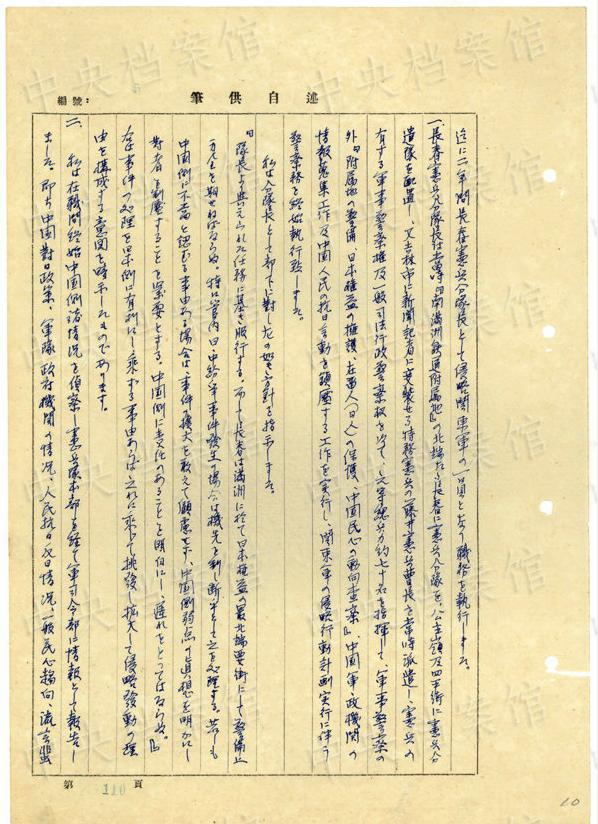 述自供筆
編號：
迄に二年間長春憲兵分隊長として侵略関東軍の一員となり職務を執行しました。
一、長春憲兵分隊長は当時『南満洲鉄道附属地』の北端たる長春に憲兵分隊を、公主嶺及四平街に憲兵分
遣隊を配置し、又吉林市に新聞記者に変装せる特務憲兵(藤井憲兵曹長)を常時派遣し、憲兵の
有する軍事警察権及一般司法行政警察権を以て、之等総兵力約七十名を指揮して、軍事警察の
外『附属地の警備、日本権益の擁護、在留人(日人)の保護、中国民心の動向査察』、中国軍、政機関の
情報蒐集工作及中国人民の抗日言動を鎮圧する工作を実行し、関東軍の侵略行動計画実行に伴う
警察務を終始執行致しました。
私は分隊長として部下に対し左の如き方針を指示しました。
『隊長より与えられた任務に基き服行する。而して長春は満洲に於て日本権益の最北端要衝にして警備上
万全を期せねばならぬ。特に管内日中紛争事件発生の場合は機先を制し断乎として之を処理する。苟しも
中国側に不当と認むる事由ある場合は、事件の拡大を敢えて顧慮せず、中国側弱点の追想を明かにし
対者を制圧することを緊要とする。中国側に責任のあることを明白にし、遅れをとってはならぬ。』
右は事件の処理を日本側に有利にし乗ずる事由あらば之れに乗じて挑発、拡大して侵略発動の理
由を構成する意図を暗示したものであります。
二、私は在職間終始中国側諸情況を偵察し憲兵隊本部を経て軍司令部に情報として報告し
ました。即ち中国対日政策、軍隊、政府機関の情況、人民抗日反日情況、一般民心趨向、流言蜚
第 110 頁
10
中央档案馆